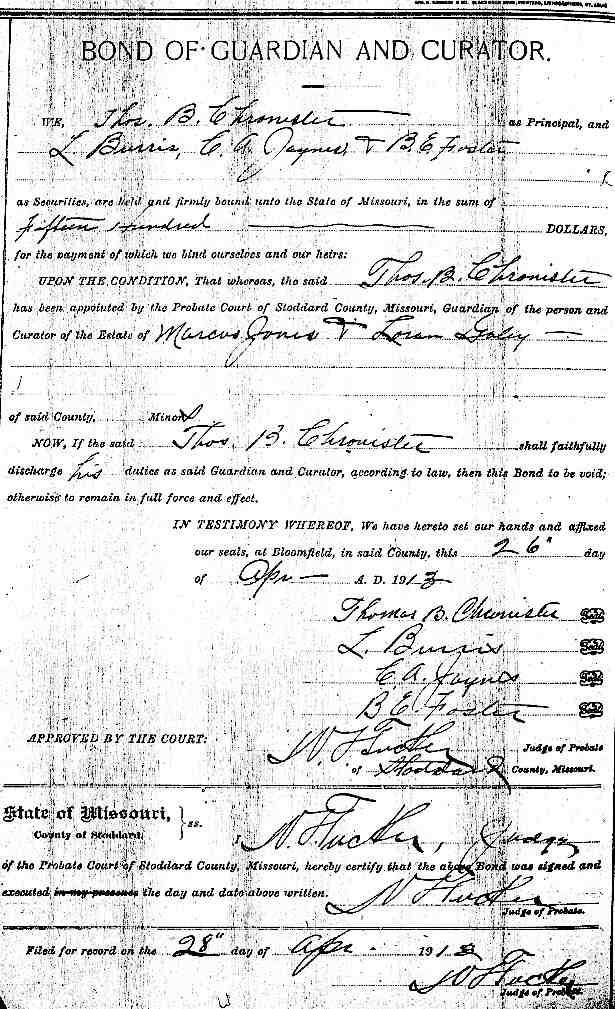 BOND OF GUARDIAN AND CURATOR.
WE, Thos. B. Chronister as Principal, and
L Burris, C. A. Jaynes, & B E Foster
as Securities, are held and firmly bound unto the State of Missouri, in the sum of
Fifteen Hundred DOLLARS,
for the payment of which we bind ourselves and our heirs:
UPON THE CONDITION, That whereas, the said Thos. B. Chronister
has been appointed by the Probate Court of Stoddard County, Missouri, Guardian of the person and
Curator of the Estate of Marcus Jones & Loran
of said County, Minors
NOW, If the said Thos. B. Chronister shall faithfully
discharge his duties as said Guardian and Curator, according to law, then this Bond to be void;
otherwise to remain in full force and effect.
IN TESTIMONY WHEREOF, We have hereto set our hands and affixed
our seals, at Bloomfield, in said County, this 26" day
of Apr A. D. 1913
Thomas B. Chronister Seal
L. Burris Seal
C. A. Jaynes Seal
B E. Foster Seal
APPROVED BY THE COURT: N F Tucker Judge of Probate
of Stoddard County, Missouri.
State of Missouri,
County of Stoddard. } ss.
I N. F Tucker, Judge
of the Probate Court of Stoddard County, Missouri, hereby certify that the above Bond was signed and
executed in my presence the day and date above written. N F Tucker
Judge of Probate.
Filed for record on the 28" day of Apr 191
N F Tucker
Judge of Probate.